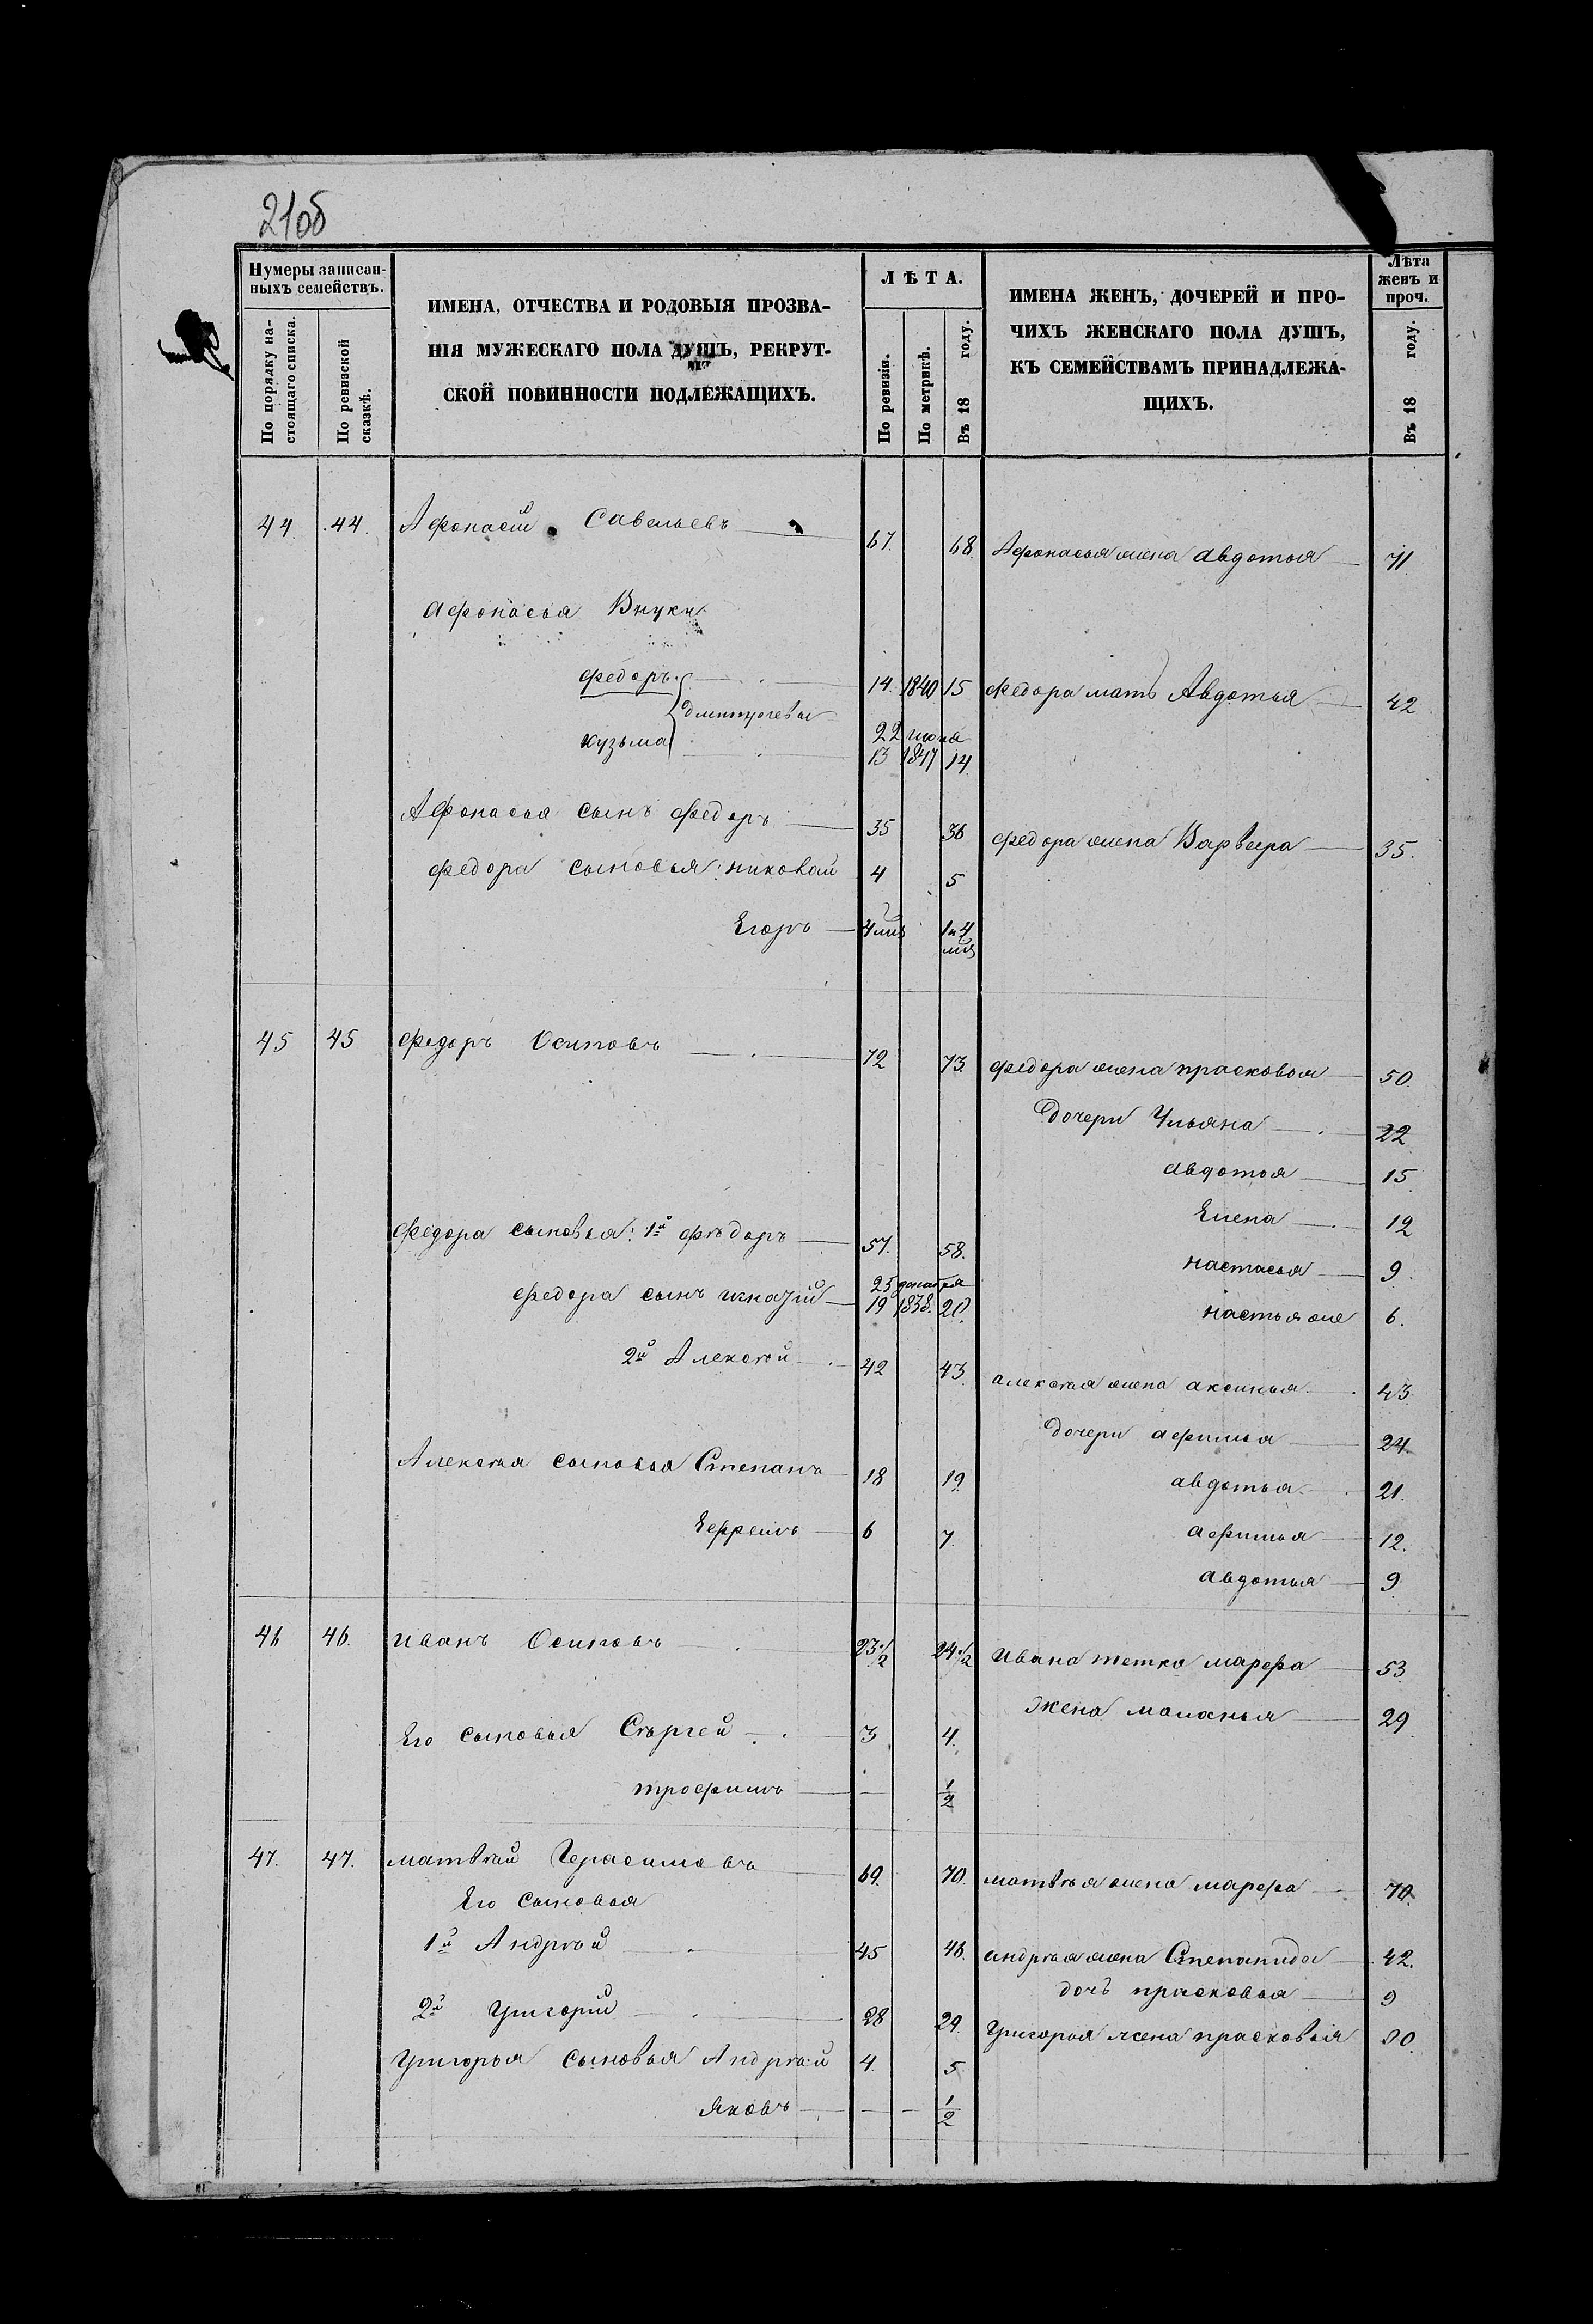 210б
Нумеры записан-
ныхъ семействъ.
По порядку на-
стоящаго списка.
По ревизской
сказкѣ.
ИМЕНА, ОТЧЕСТВА И РОДОВЫЯ ПРОЗВА-
НІЯ МУЖЕСКАГО ПОЛА ДУШЪ, РЕКРУТ-
СКОЙ ПОВИННОСТИ ПОДЛЕЖАЩИХЪ.
ЛѢТА.
По ревизіи.
По метрикѣ.
Въ 18 году.
ИМЕНА ЖЕНЪ, ДОЧЕРЕЙ И ПРО-
ЧИХЪ ЖЕНСКАГО ПОЛА ДУШЪ,
КЪ СЕМЕЙСТВАМЪ ПРИНАДЛЕЖА-
ЩИХЪ.
Лѣта
женъ и
проч.
Въ 18 году.
44. 44. Афонасій Савельевъ 67. 68. Афонасья жена авдотья 71
афонасья Внуки
федоръ 14. 1840 15 федора мать Авдотья 42
дмитріевы
22 июня
кузьма 13 1847 14.
Афонасья сынъ федоръ 35 36 федора жена Варвара 35.
федора сыновья: николай 4 5
Егоръ 4 мц 1 и 4
мц
45 45 федоръ Осиповъ 72 73. федора жена прасковья 50
дочери Ульяна 22
авдотья 15
Елена 12
федора сыновья: 1й фѣдоръ 57. 58.
настасья 9
25 декабря
федора сынъ игнатій 19 1838. 20.
настья же 6.
2й Алексѣй 42 43. алексѣя жена аксинья 43
дочери афимья 24
Алексѣя сыновья Степанъ 18 19
авдотья 21.
Ефремъ 6 7.
афимья 12.
авдотья 9
46 46. иванъ Осиповъ 23 1/2 24 1/2 ивана тетка марфа 53
жена маланья 29
Его сыновья Сѣргей 3 4.
трофимъ — 1/2
47. 47. матвѣй Герасимовъ 69. 70. матвѣя жена марфа 70.
Его сыновья
1й Андрѣй 45 46. андрѣя жена Степанида 42.
дочь прасковья 9
2й Григорій 28 29. Григорья жена прасковья 30.
Григорья сыновья Андрѣй 4. 5
яковъ — — 1/2